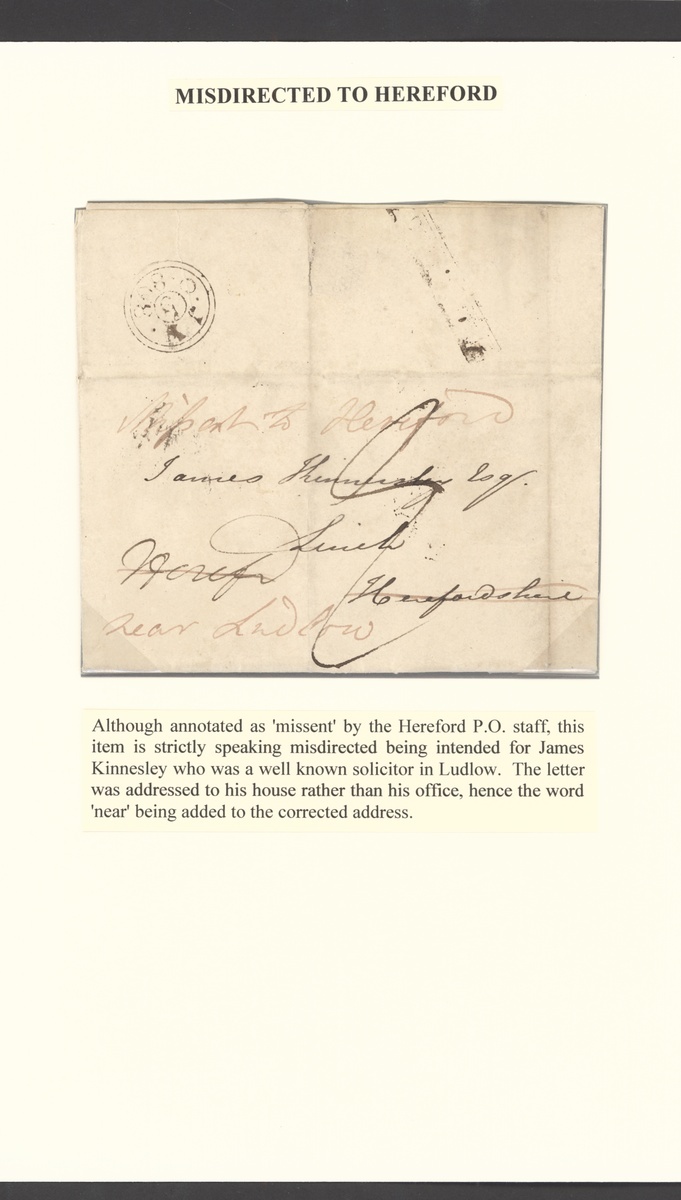 MISDIRECTED TO HEREFORD
to Hereford
James Esqr.
Herefordshire
near Ludlow
Although annotated as 'missent' by the Hereford P.O. staff, this
item is strictly speaking misdirected being intended for James
Kinnesley who was a well known solicitor in Ludlow. The letter
was addressed to his house rather than his office, hence the word
'near' being added to the corrected address.